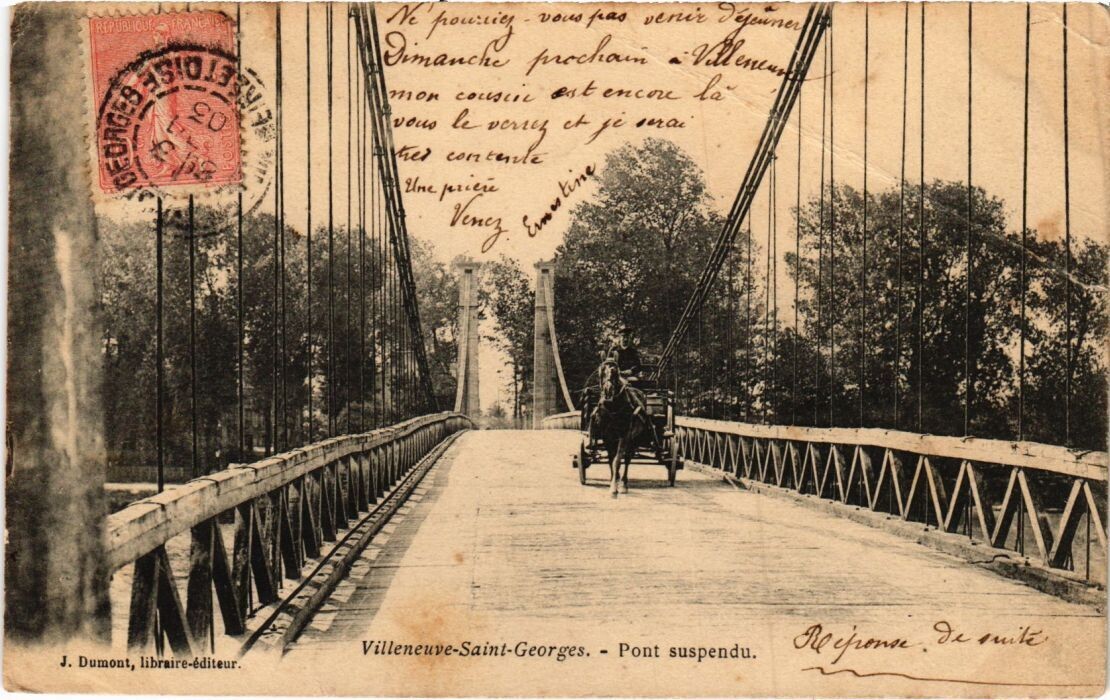 RÉPUBLIQUE FRANÇAISE
GEORGES SEINE ET OISE
03
Ne pourriez-vous pas venir déjeûner
Dimanche prochain à Villeneuve
mon cousin est encore là
vous le verrez et je serai
très contente
Une prière
Venez. Ernestine
Villeneuve-Saint-Georges. - Pont suspendu.
J. Dumont, libraire-éditeur.
Réponse de suite